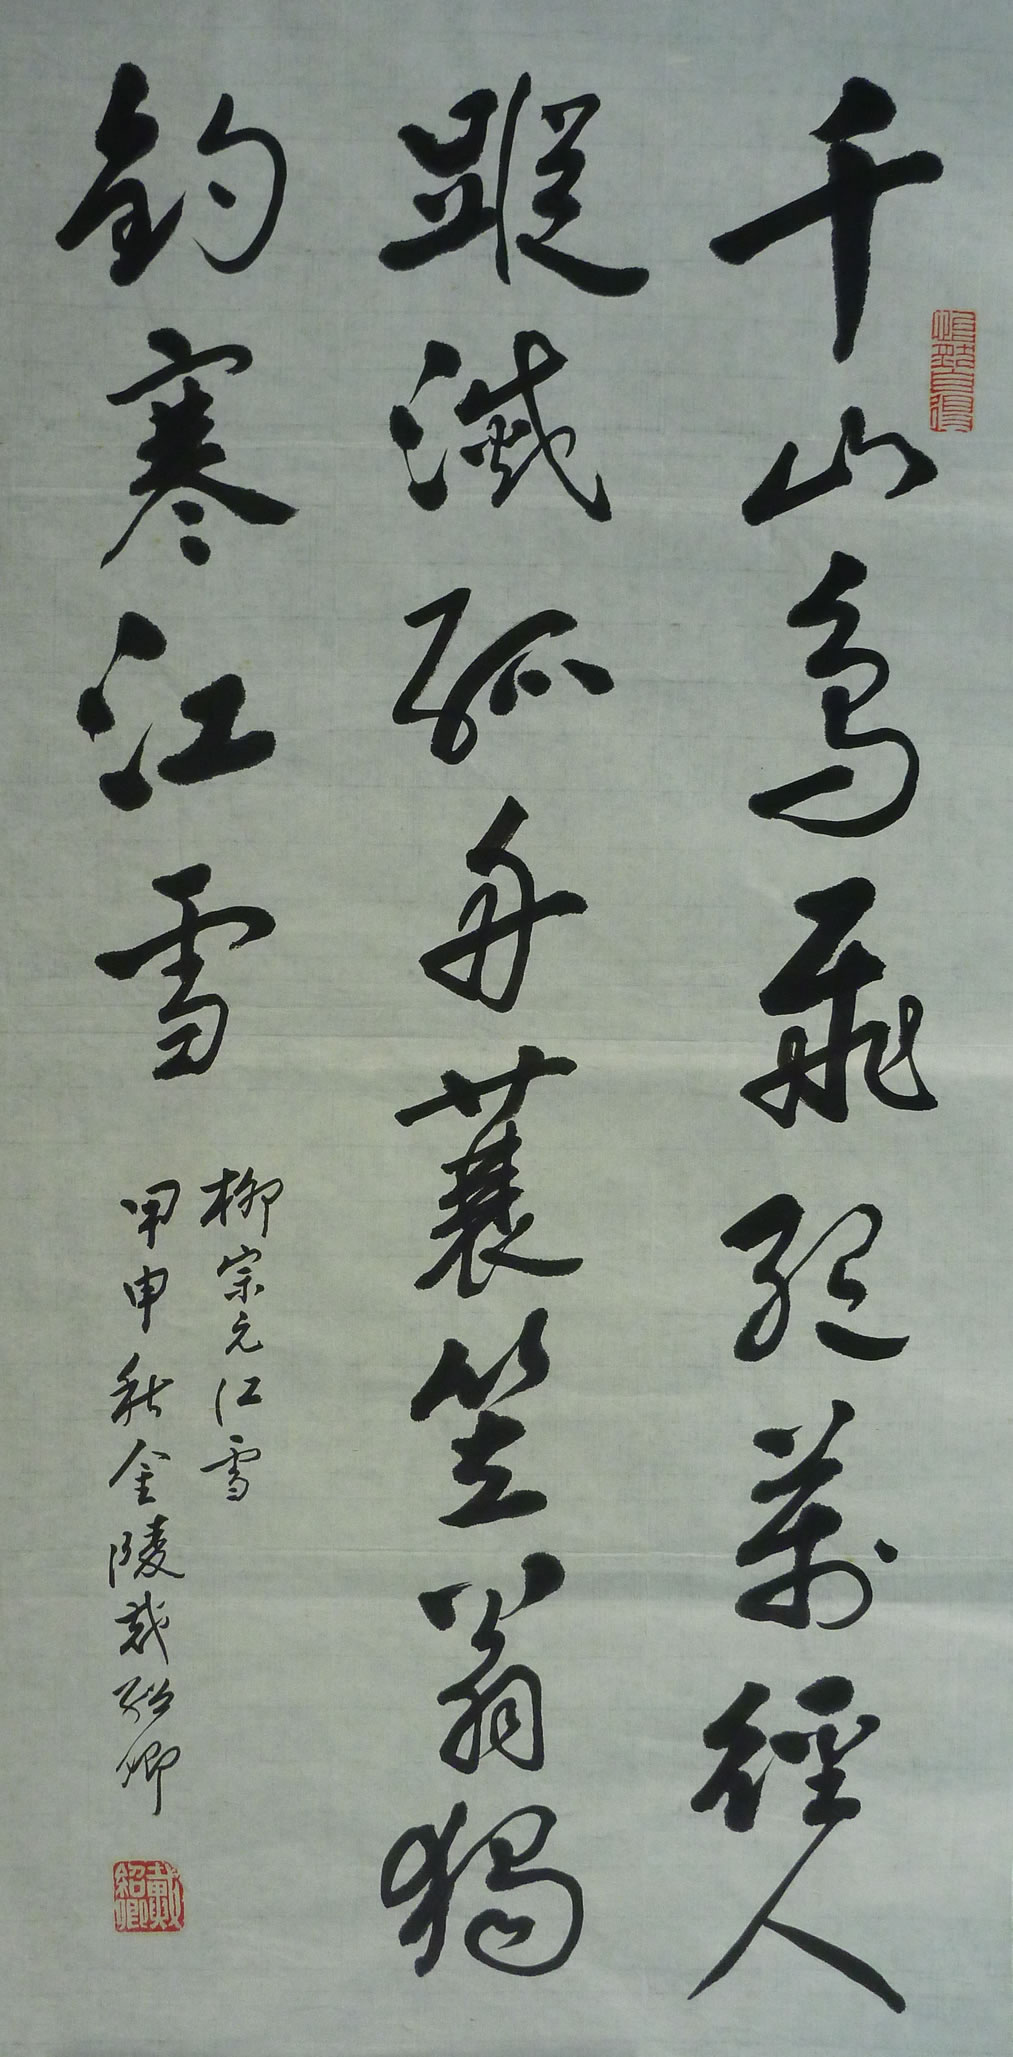 千山鳥飛絕萬徑人
蹤滅孤舟蓑笠翁獨
釣寒江雪
柳宗元江雪
甲申秋金陵戴紹卿
戴紹卿